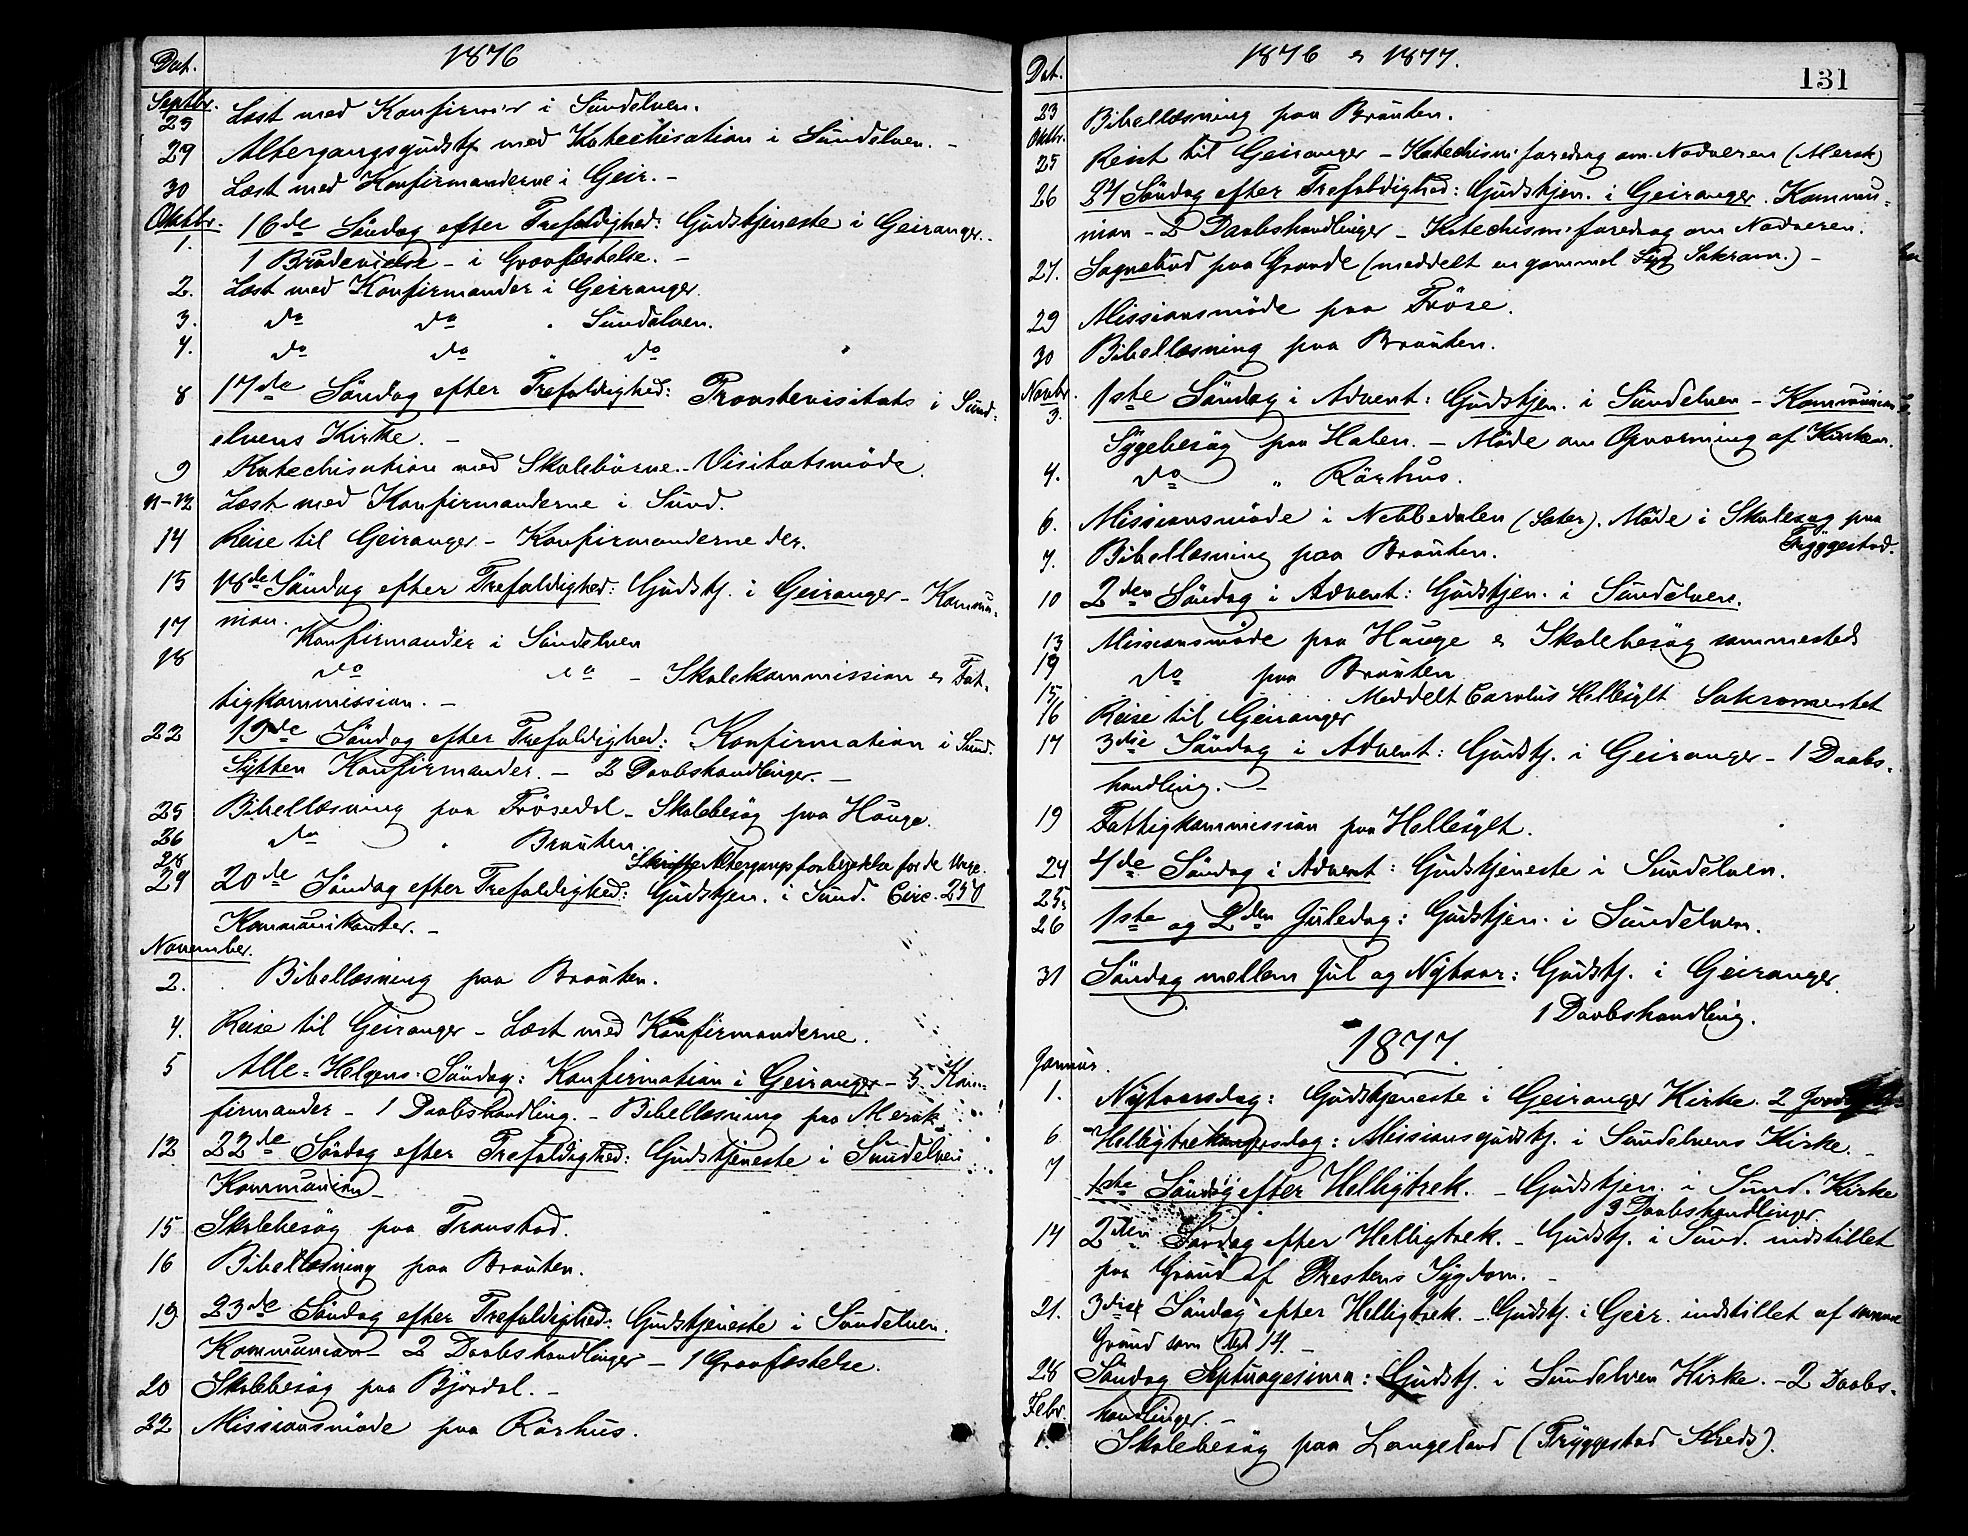 Dat. 1876
Septbr. 25 Læst med Konfirm'r i Sundelven.
29 Altergangsgudstj med Katechisation i Sundelven. -
30 Læst med Konfirmanderne i Geir. -
Oktbr. 1. 16de Søndag efter Trefoldighed: Gudstjeneste i Geiranger.
1 Brudevielse - i Gravfæstelse. -
2. Læst med Konfirmander i Geiranger
3. do do " Sundelven.
4. do do " do
8 17de Søndag efter Trefoldighed: Provstevisitats i Sund-
elvens Kirke. -
9 Katechisation med Skolebörne - Visitatsmöde
11-12 Læst med Konfirmanderne i Sund.
14 Reise til Geiranger - Konfirmanderne der.
15 18de Søndag efter Trefoldighed: Gudstj. i Geiranger - Kommu-
nion.
17 Konfirmander i Sundelven
18 do do - Skolekommission & Fat-
tigkommission. -
22 19de Søndag efter Trefoldighed: Konfirmation i Sund.
Sytten Konfirmander. - 2 Daabshandlinger. -
25 Bibellæsning paa Frösedal - Skolebesög paa Hauge.
26 do " Brauten
28 Skrifte Altergangsforberedelse for de Unge.
29 20de Søndag efter Trefoldighed: Gudstjen. i Sund. Circ. 250
Kommunikanter. -
November.
2. Bibellæsning paa Brauten.
4. Reise til Geiranger - Læst med Konfirmanderne.
5 Alle-Helgens-Søndag: Konfirmation i Geiranger - 5 Kon-
firmander - 1 Daabshandling. - Bibellæsning paa Merok.
12 22de Søndag efter Trefoldighed: Gudstjeneste i Sundelven
Kommunion -
15 Skolebesög paa Transtad.
16 Bibellæsning paa Brauten.
19 23de Søndag efter Trefoldighed: Gudstjeneste i Sundelven.
Kommunion - 2 Daabshandlinger - 1 Gravfæstelse.
20 Skolebesög paa Björdal. -
22 Missionsmöde paa Rörhus.
Dat. 1876 & 1877. 131
23 Bibellæsning paa Brauten.
Oktbr. 25 Reist til Geiranger - Katechism: foredrag om Nadveren (Merok)
26 24 Søndag efter Trefoldighed: Gudstjen. i Geiranger. Kommu-
nion - 2 Daabshandlinger - Katechism: foredrag om Nadveren.
27. Sognebud paa Grande (meddelt en gammel Syg Sakram.) -
29 Missionsmöde paa Fröse.
30 Bibellæsning paa Brauten.
Novbr. 3. 1ste Søndag i Advent: Gudstjen. i Sundelven - Kommunion
Sygebesög paa Holen. - Möde om Opvarming af Kirken.
4. do " Rörhus.
6. Missionsmöde i Nebbedalen (Sæter). Möde i Skolesag paa
Tryggestad.
7. Bibellæsning paa Brauten.
10 2den Søndag i Advent: Gudstjen. i Sundelven.
13 Missionsmöde paa Hauge & Skolebesög sammesteds
19 do paa Brauten
15 Meddelt Carolus Hellesylt Sakramentet
16 Reise til Geiranger
17 3die Søndag i Advent: Gudstj. i Geiranger - 1 Daabs-
handling. -
19 Fattigkommission paa Hellesylt.
24 4de Søndag i Advent: Gudstjeneste i Sundelven.
25:
26 1ste og 2den Juledag: Gudstjen. i Sundelven.
31 Søndag mellem Jul og Nytaar: Gudstj. i Geiranger.
1 Daabshandling.
1877.
Januar.
1. Nytaarsdag: Gudstjeneste i Geiranger Kirke. 2
6 Helligtrekongersdag: Missionsgudstj. i Sundelvens Kirke. -
7 1ste Søndag efter Helligtrek. - Gudstjen. i Sund. Kirke
3 Daabshandlinger
14 2den Søndag efter Helligtrek. - Gudstj. i Sund. indstillet
paa Grund af Prestens Sygdom. -
21. 3die Søndag efter Helligtrek. - Gudstj. i Geir. indstillet af samme
Grund som den 14. -
28 Søndag Septuagesima: Gudstj. i Sundelven Kirke. - 2 Daabs-
handlinger. -
Febr. 1. Skolebesög paa Langeland (Tryggestad Kreds).